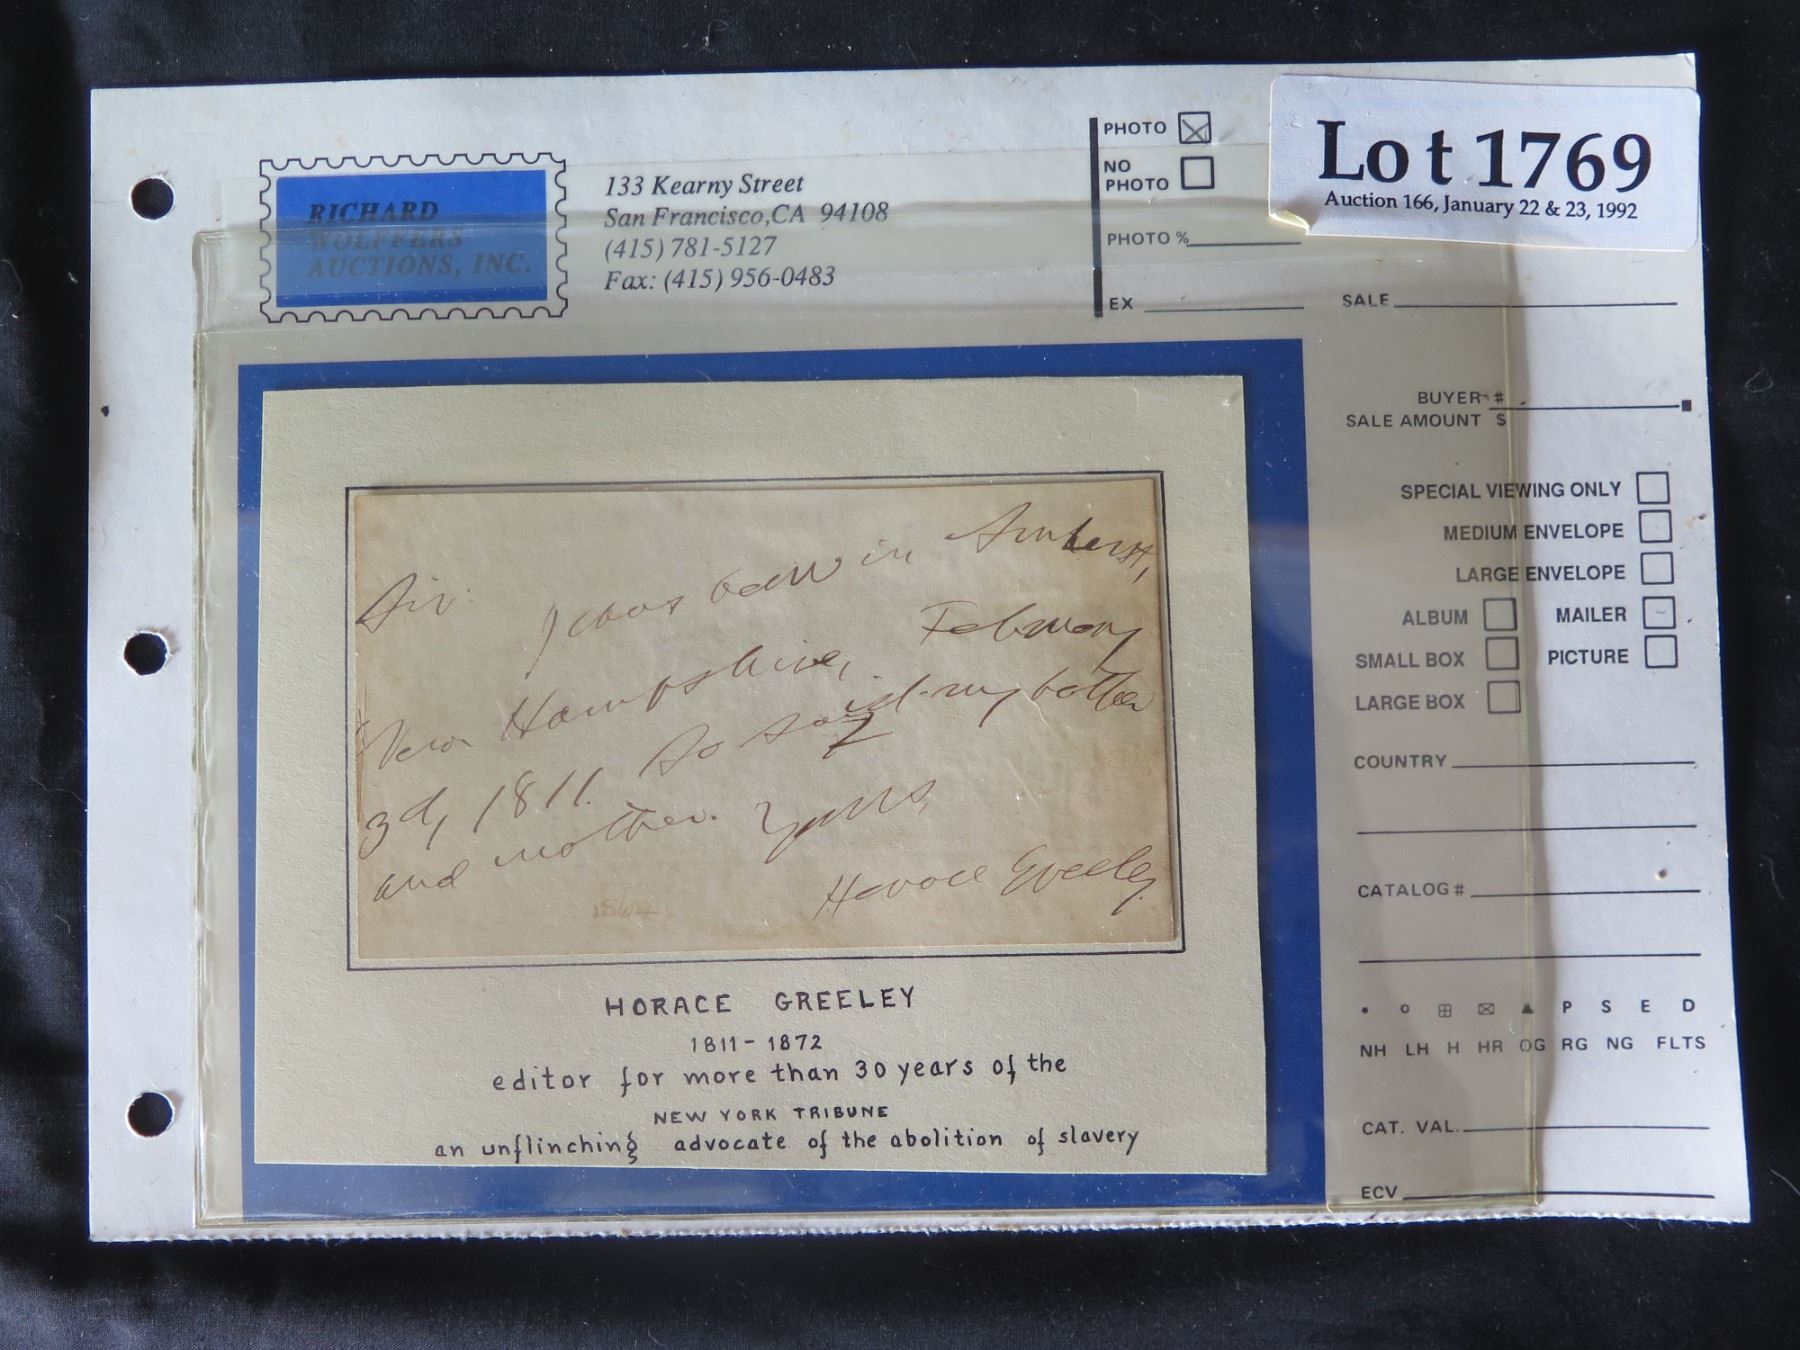 RICHARD
WOLFFERS
AUCTIONS, INC.
133 Kearny Street
San Francisco, CA 94108
(415) 781-5127
Fax: (415) 956-0483
PHOTO
NO
PHOTO
PHOTO %
EX
Lot 1769
Auction 166, January 22 & 23, 1992
SALE
BUYER #
SALE AMOUNT $
SPECIAL VIEWING ONLY
MEDIUM ENVELOPE
LARGE ENVELOPE
ALBUM MAILER
SMALL BOX PICTURE
LARGE BOX
COUNTRY
CATALOG #
P S E D
NH LH H HR OG RG NG FLTS
CAT. VAL.
ECV
Sir:
I was born in Amherst,
New Hampshire, February
3d, 1811. So said my father
and mother. Yours,
Horace Greeley.
HORACE GREELEY
1811-1872
editor for more than 30 years of the
NEW YORK TRIBUNE
an unflinching advocate of the abolition of slavery